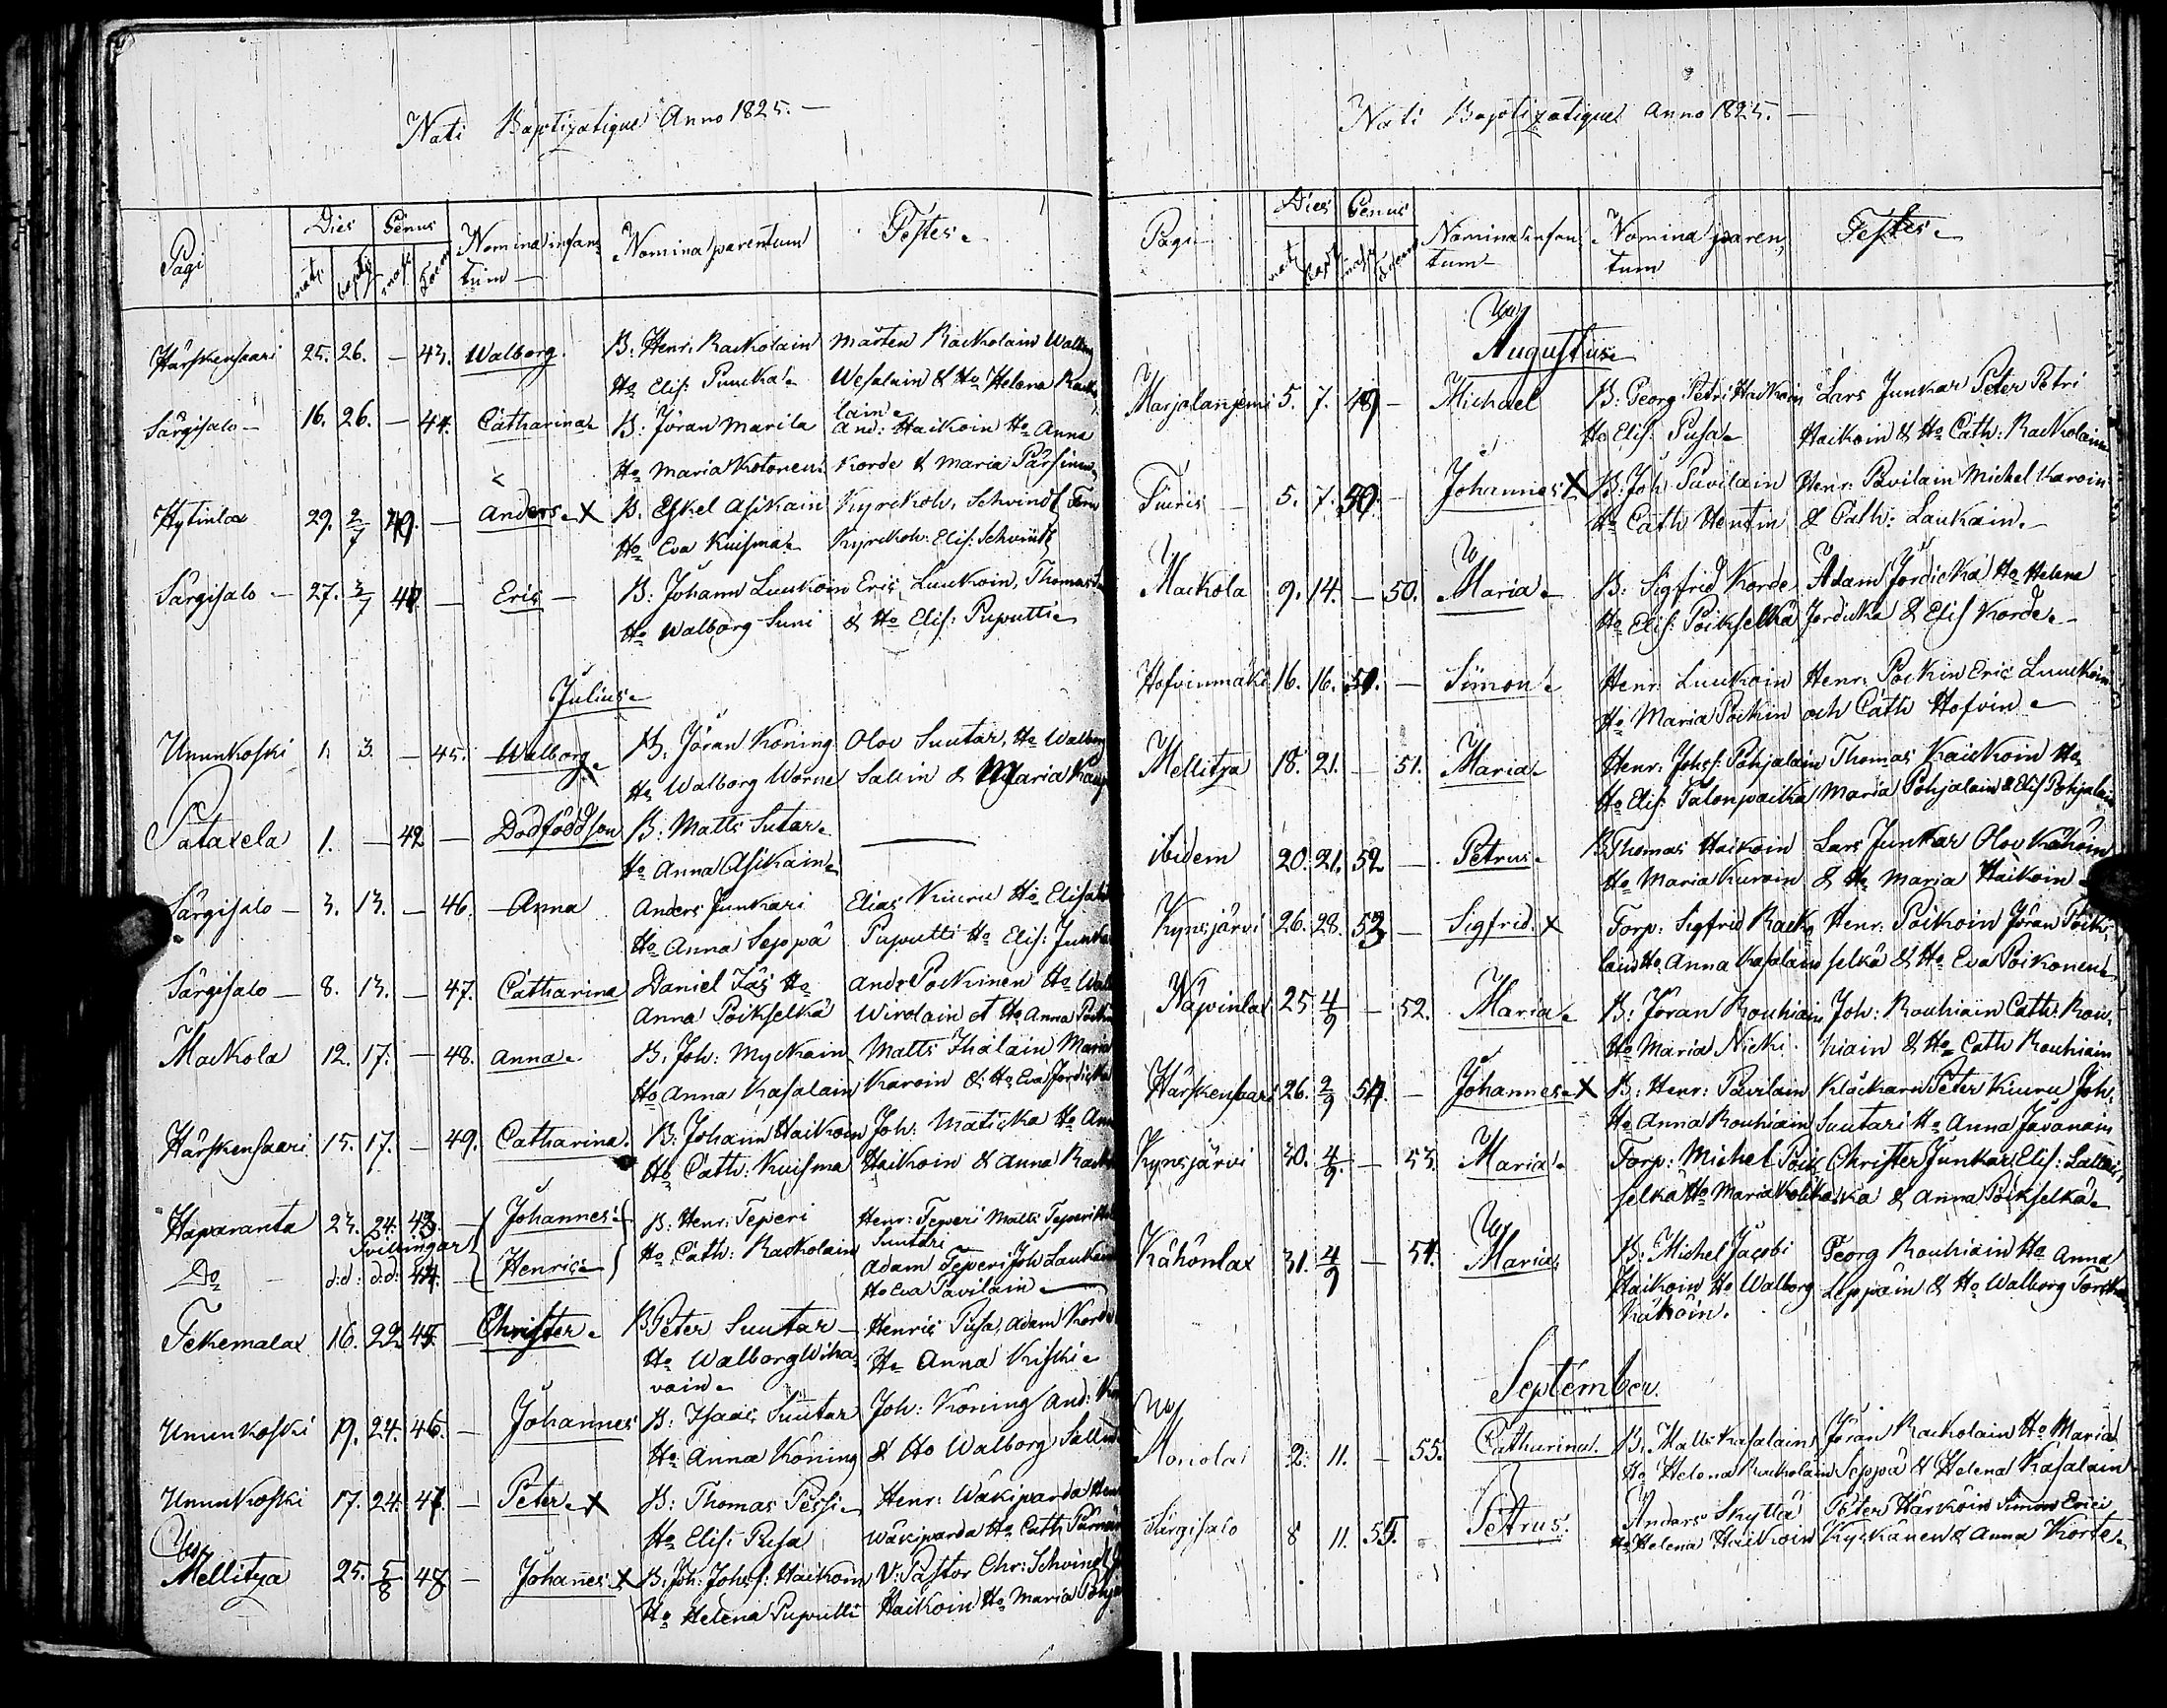 Nati Baptizatique Anno 1825. —
Pagi Dies Genus Nomina infan- Nomina parentum Testes.
nati bapti masc Foem tum —
Härskensaari 25. 26. — 43. Walborg. B: Henr: Rackolain Mårten Rackolain Walborg
Ho Elis: Puucka. Wesalain & Ho Helena Racko
Särgisalo — 16. 26. — 44. Catharina B: Jöran Marila lain. And: Haikoin Ho Anna
Ho Maria Kotonen. Korde & Maria Pärsinen
Hytinlax 29. 2/7 — Anders. X B. Eskel Asikain Kyrckoh. Schvindt
Ho Eva Kuisma. Kyrckoh: Elis: Schvindt
Särgisalo — 27. 3/7 — Eric — B: Johann Luukoin Eric Luukoin, Thomas
Ho Walborg Suni & Ho Elis: Puputti.
Julius.
Ununkoski 1. 3. — 45. Walborg. B. Jöran Köning Olov Suutar, Ho Walborg
Ho Walborg Worne Sallin & Maria
Putaxela 1. — 42 — Dödfödd son B: Matts Sutar. —
Ho Anna Asikain.
Särgisalo — 3. 13. — 46. Anna Anders Junkari Elias Kiuru Ho Elisab
Ho Anna Seppä Puputti Ho Elis: Junka
Särgisalo — 8. 13. — 47. Catharina Daniel Ho Andr Pockinen Ho Walb
Anna Poikselkä Wirolain et Ho Anna
Mackola 12. 17. — 48. Anna. B. Joh: Myckain Matts Ihalain Maria
Ho Anna Kasalain Karoin & Ho Eva Jordicka
Härskensaari 15. 17. — 49. Catharina. B: Johann Haikoin Joh: Maticka Ho Ann
Ho Cath: Kuisma Haikoin & Anna Rack
Haparanta 23. 24. 43. — Johannes B: Henr: Teperi Henr: Teperi Matts Teperi
Tvillingar Ho Cath: Rackolain Suutari
Do — d:d: d:d: 44. — Henric. Adam Teperi Joh Laukain
Ho Eva Pavilain —
Tekemalax 16. 22 45. — Christer. B Peter Suutar — Henric Pusa, Adam Korde
Ho Walborg Wiha- Ho Anna Kiski.
vain.
Ununkoski 19. 24. 46. — Johannes B: Isaac Suutar Joh: Köning And:
Ho Anna Köning & Ho Walborg Sallin
Ununkoski 17. 24. 47. — Peter. X B: Thomas Pessi. Henr: Wäkiparda Hen
Ho Elis: Pusa Wäkiparda Ho Cath
Mellitza 25. 5/8 48 — Johannes X B. Joh: Johs s: Haikoin V: Pastor Chr: Schvindt
Ho Helena Puputti Haikoin Ho Maria Pohja
Nati Baptizatique Anno 1825. —
Pagi Dies Genus Nomina infan- Nomina paren- Testes.
nati bapt masc foem tum — tum
Augustus
Marjalanjemi 5. 7. 49 — Michael B: Georg Petri Haikoin Lars Junkar Peter Petri
Ho Elis: Pusa. Haikoin & Ho Cath: Rackolain
Fiuris — 5. 7. 50. — Johannes X B: Joh Pavilain Henr: Pavilain Michel Karoin
Ho Cath Hentin & Cath: Laukain. —
Mackola 9. 14. — 50. Maria. B: Sigfrid Korde Adam Jordicka Ho Helena
Ho Elis: Poikselkä Jordicka & Elis Korde. —
Hofvinmäki 16. 16. 51. — Simon. Henr: Luukoin Henr: Pockin Eric Luukoin
Ho Maria Pockin och Cath Hofvin.
Mellitza 18. 21. — 51. Maria. Henr: Johs s: Pohjalain Thomas Kaickoin Ho
Ho Elis: Talonpoicka Maria Pohjalain & Elis Pohjalain
ibidem 20. 21. 52 — Petrus. B Thomas Haikoin Lars Junkar Olov Kähöin
Ho Maria Kuroin & Ho Maria Haikoin.
Kynsjärvi 26. 28. 53 — Sigfrid. X Torp: Sigfrid Racko Henr: Poikoin Jöran Poik-
lain Ho Anna Kasalain selkä & Ho Eva Poikonen.
Näpinlax 25 4/9 — 52. Maria. B: Jöran Rouhiain Joh: Rouhiain Cath: Rou-
Ho Maria Nicki. hiain & Ho Cath Rouhiain
Härskensaari 26. 2/9 54. — Johannes. X B: Henr: Pavilain Klåckaren Peter Kiuru Joh.
Ho Anna Rouhiain Suutari Ho Anna Javanain
Kynsjärvi 30. 4/9 — 53. Maria. Torp: Michel Poik Christer Junkar Elis:
selka Ho Maria & Anna Poikselkä.
Kähönlax 31. 4/9 — 54. Maria. B: Michel Jacobi Georg Rouhiain Ho Anna
Haikoin Ho Walborg Leppäin & Ho Walborg
Kähöin.
September.
Monola 2. 11. — 55. Catharina. B. Matts Kasalain Jöran Rackolain Ho Maria
Ho Helena Rackolain Seppä & Helena Kasalain
Särgisalo 8 11. 55. — Petrus. Anders Skyttä Peter Härköin Simon Erici
Ho Helena Haikoin Kyckänen & Anna Korte.